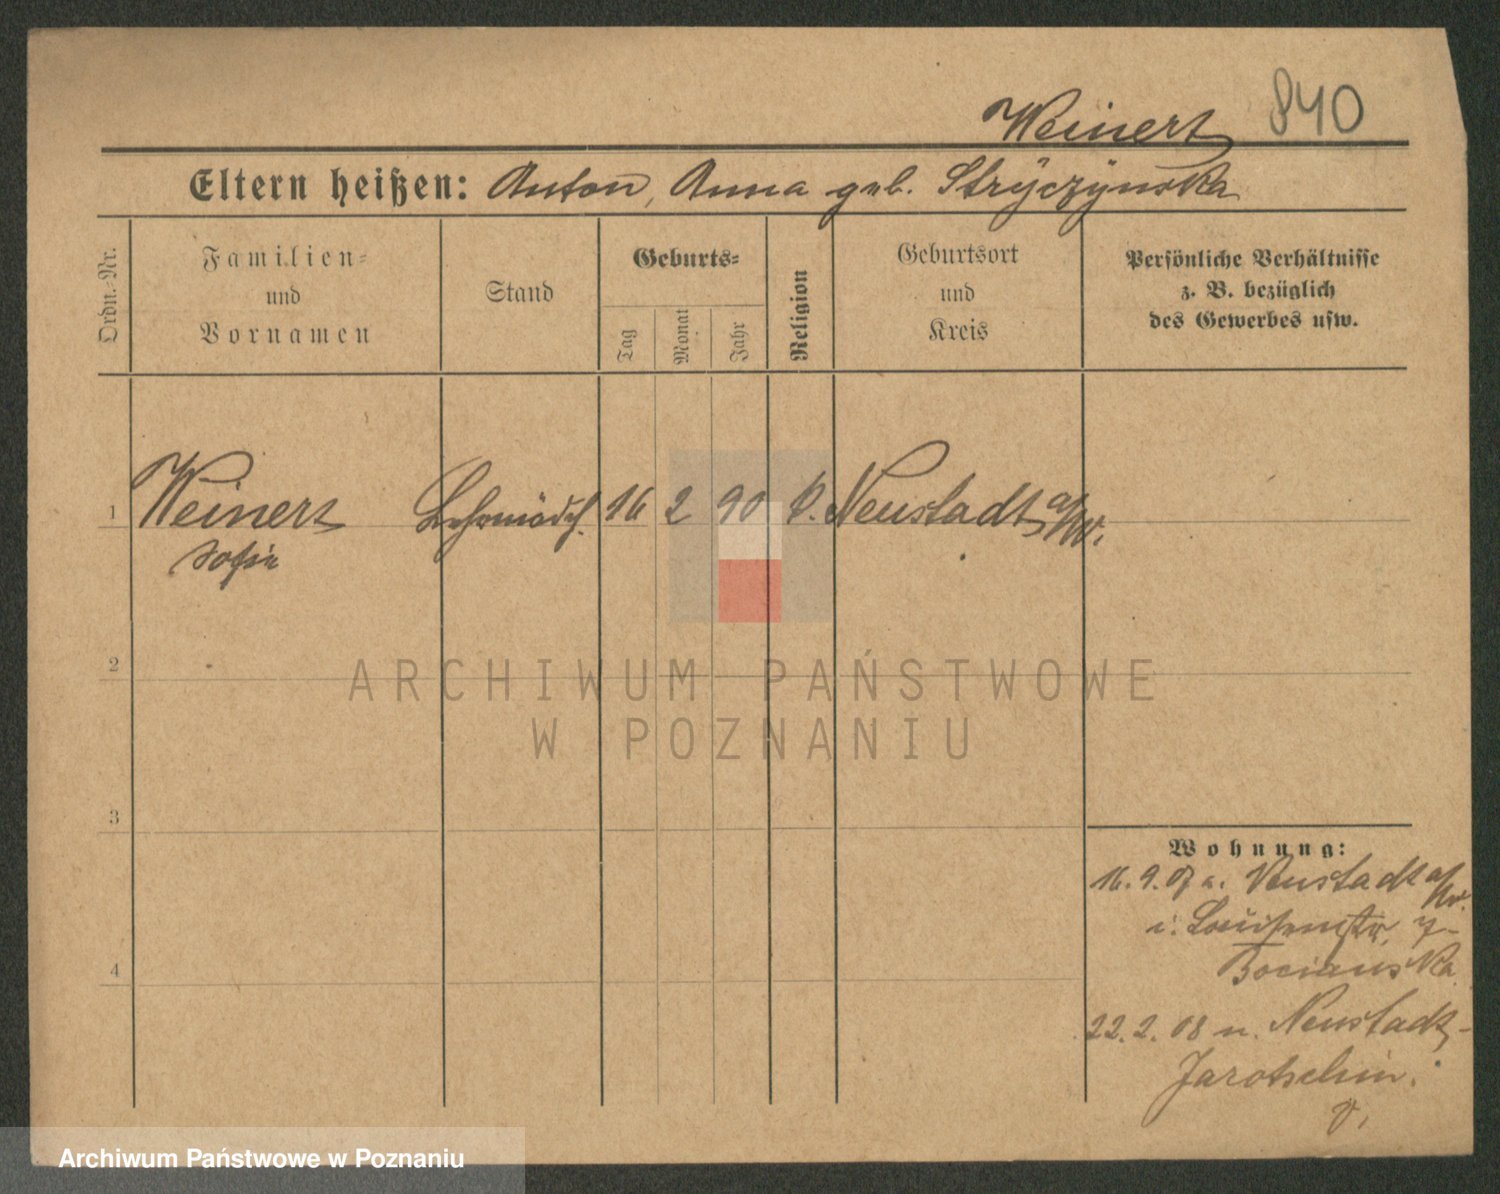 Weinert 840
Eltern heißen: Anton, Anna geb. Stryczynska
Ordn.-Nr.
Familien-
und
Vornamen
Stand
Geburts-
Tag
Monat
Jahr
Religion
Geburtsort
und
Kreis
Persönliche Verhältnisse
z. B. bezüglich
des Gewerbes usw.
1 Weinert Lehrmädch. 16 2 90 k. Neustadt a/W.
Sofie
2
3
4
Wohnung:
16.9.07 a. Neustadt a/W.
i. Louisenstr. 7
Bocianska
22.2.08 n. Neustadt,
Jarotschin.
ARCHIWUM PAŃSTWOWE
W POZNANIU
Archiwum Państwowe w Poznaniu